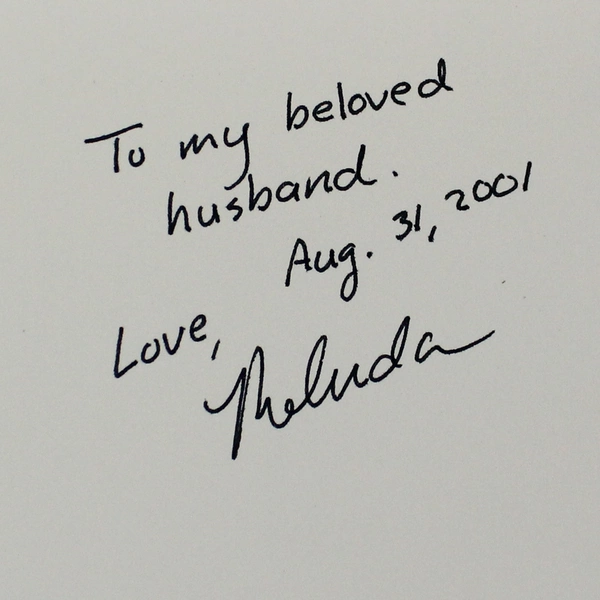 To my beloved
husband.
Aug. 31, 2001
Love,
Melinda